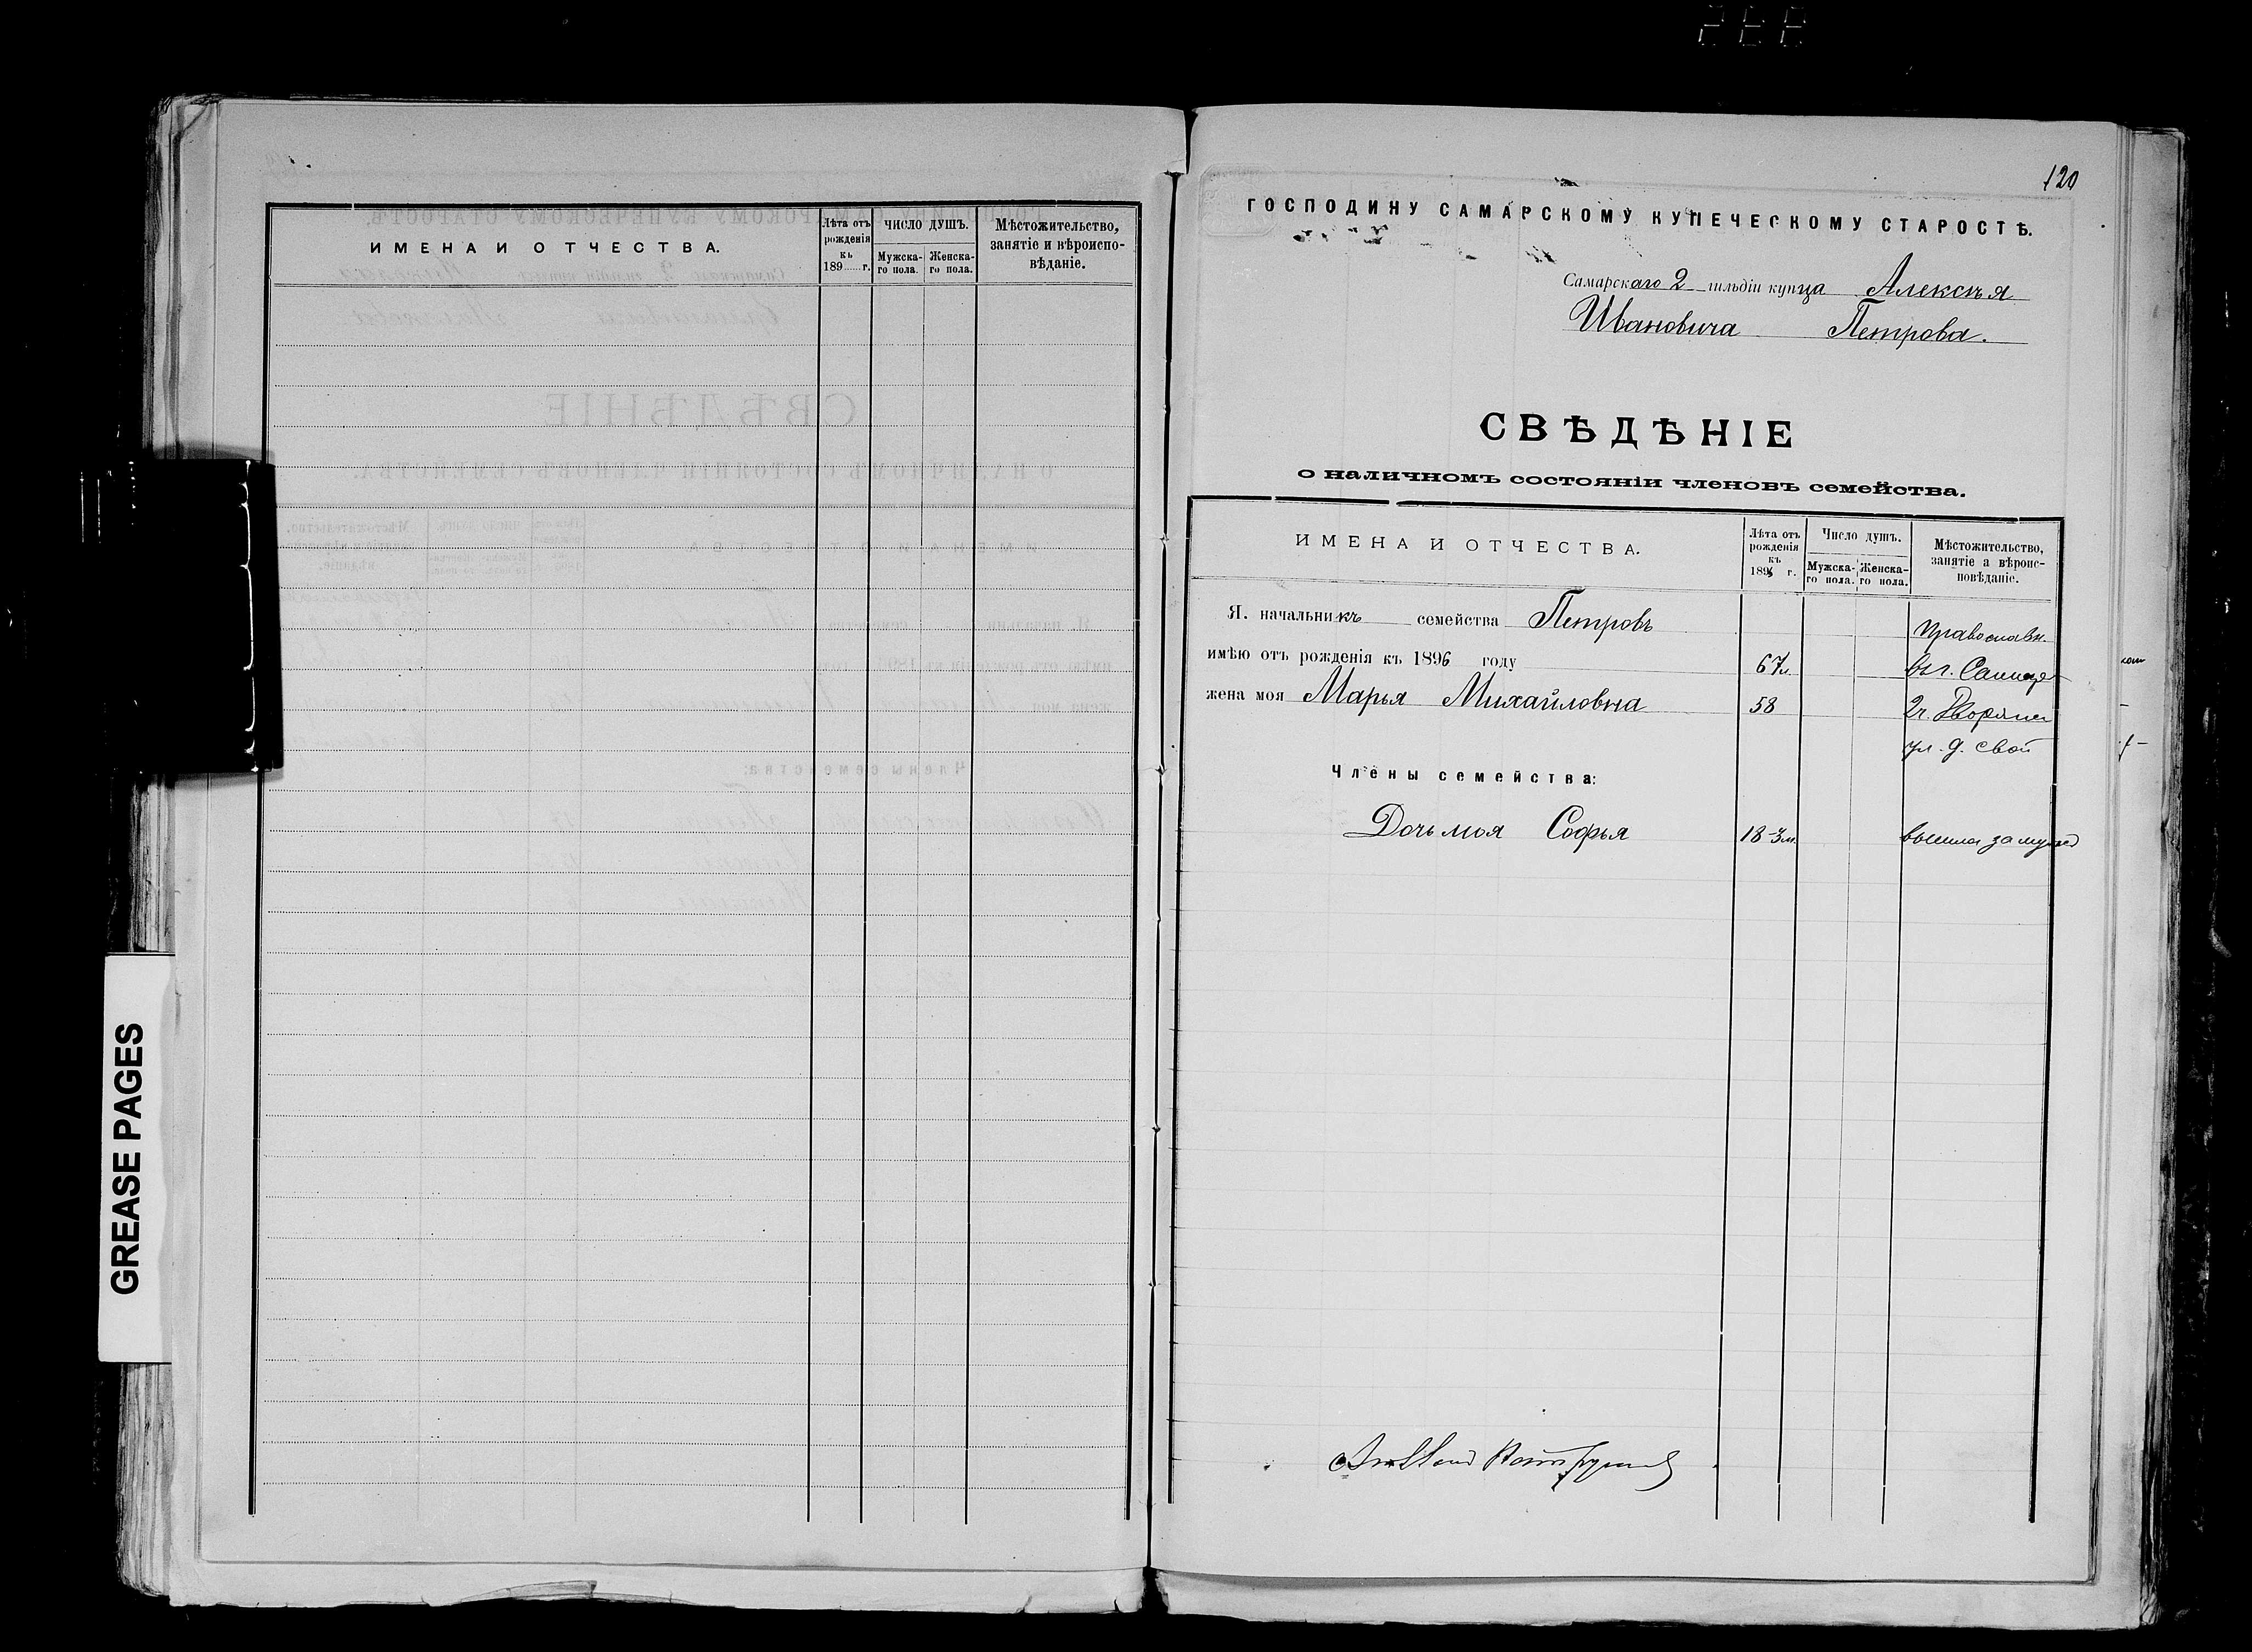 ИМЕНА И ОТЧЕСТВА.
Лѣта отъ рожденія къ 189 г.
ЧИСЛО ДУШЪ.
Мужска-го пола.
Женска-го пола.
Мѣстожительство, занятіе и вѣроиспо-вѣданіе.
GREASE PAGES
120
ГОСПОДИНУ САМАРСКОМУ КУПЕЧЕСКОМУ СТАРОСТѢ.
Самарскаго 2 гильдіи купца Алексѣя
Ивановича Петрова.
СВѢДѢНІЕ
о наличномъ состояніи членовъ семейства.
ИМЕНА И ОТЧЕСТВА.
Лѣта отъ рожденія къ 1896 г.
Число душъ.
Мужска-го пола.
Женска-го пола.
Мѣстожительство, занятіе а вѣроис-повѣданіе.
Я. начальникъ семейства Петровъ Православн.
имѣю отъ рожденія къ 1896 году 67л. въ г.
жена моя Марья Михайловна 58 2ч. Дворян
ул. д. свой
Члены семейства:
Дочь моя Софья 18-3м. вышла замужъ